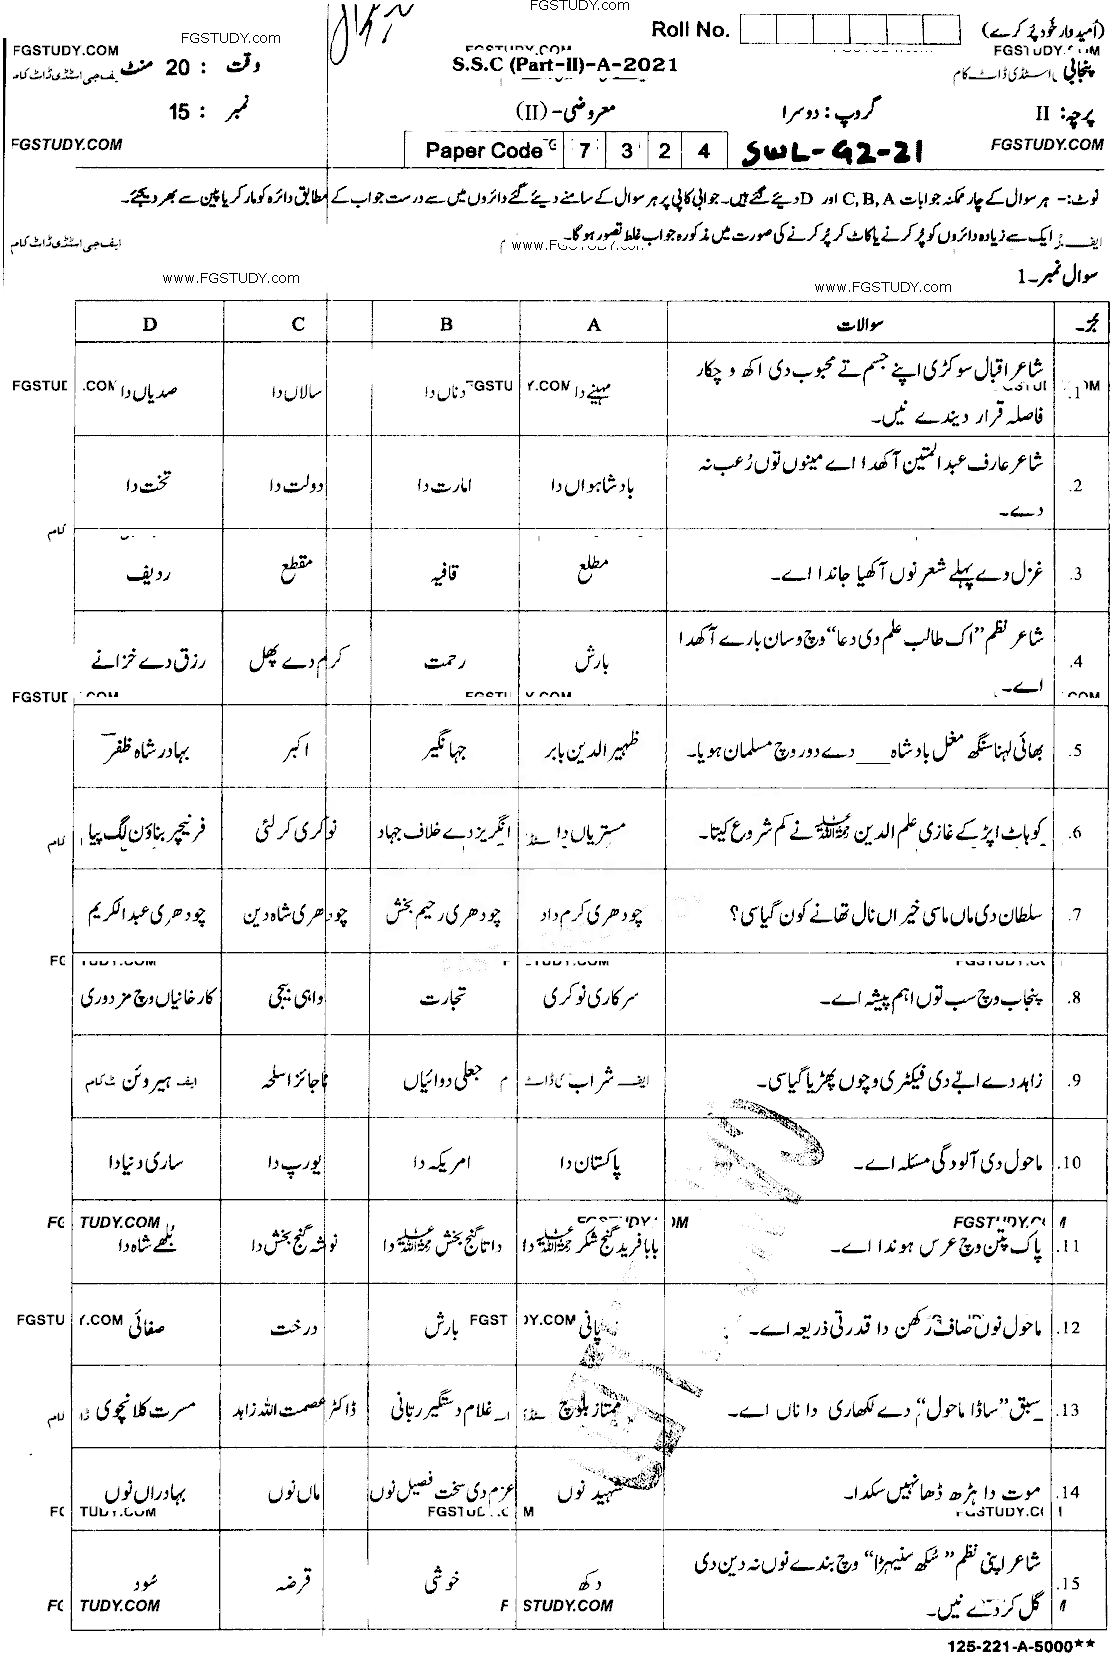 FGSTUDY.com
FGSTUDY.com
Roll No.
(امیدوار خود پُر کرے)
FGSTUDY.COM
FGSTUDY.COM
FGSTUDY.COM
وقت : 20 منٹ
ایف جی اسٹڈی ڈاٹ کام
S.S.C (Part-II)-A-2021
پنجابی
اسٹڈی ڈاٹ کام
نمبر : 15
معروضی-(II)
گروپ: دوسرا
پرچہ: II
FGSTUDY.COM
Paper Code 7 3 2 4
SWL-G2-21
FGSTUDY.COM
نوٹ:- ہر سوال کے چار ممکنہ جوابات C, B, A اور D دیئے گئے ہیں۔ جوابی کاپی پر ہر سوال کے سامنے دیئے گئے دائروں میں سے درست جواب کے مطابق دائرہ کو مارکر یا پین سے بھر دیجئے۔
ایک سے زیادہ دائروں کو پُر کرنے یا کاٹ کر پُر کرنے کی صورت میں مذکورہ جواب غلط تصور ہو گا۔
www.FGSTUDY.com
ایف جی اسٹڈی ڈاٹ کام
سوال نمبر۔1
www.FGSTUDY.com
www.FGSTUDY.com
سوالات A B C D
1. شاعر اقبال سوکڑی اپنے جسم تے محبوب دی اکھ وچکار
فاصلہ قرار دیندے نیں۔
مہینے دا دناں دا سالاں دا صدیاں دا
2. شاعر عارف عبدالمتین آکھدا اے مینوں توں رُعب نہ
دے۔
بادشاہواں دا امارت دا دولت دا تخت دا
3. غزل دے پہلے شعر نوں آکھیا جاندا اے۔ مطلع قافیہ مقطع ردیف
4. شاعر نظم "اک طالب علم دی دعا" وچ وسان بارے آکھدا
اے۔
بارش رحمت کرم دے پھل رزق دے خزانے
5. بھائی لہنا سنگھ مغل بادشاہ ___ دے دور وچ مسلمان ہویا۔ ظہیر الدین بابر جہانگیر اکبر بہادر شاہ ظفر
6. کوہاٹ اپڑ کے غازی علم الدین نے کم شروع کیتا۔ مستریاں دا انگریز دے خلاف جہاد نوکری کر لئی فرنیچر بناؤن لگ پیا
7. سلطان دی ماں ماسی خیراں نال تھانے کون گیا سی؟ چودھری کرم داد چودھری رحیم بخش چودھری شاہ دین چودھری عبدالکریم
8. پنجاب وچ سب توں اہم پیشہ اے۔ سرکاری نوکری تجارت واہی بیجی کارخانیاں وچ مزدوری
9. زاہد دے ابے دی فیکٹری وچوں پھڑیا گیا سی۔ شراب جعلی دوائیاں ناجائز اسلحہ ہیروئن
10. ماحول دی آلودگی مسئلہ اے۔ پاکستان دا امریکہ دا یورپ دا ساری دنیا دا
11. پاک پتن وچ عرس ہوندا اے۔ بابا فرید گنج شکر دا داتا گنج بخش دا نوشہ گنج بخش دا بُلھے شاہ دا
12. ماحول نوں صاف رکھن دا قدرتی ذریعہ اے۔ پانی بارش درخت صفائی
13. سبق "ساڈا ماحول" دے لکھاری دا ناں اے۔ ممتاز بلوچ غلام دستگیر ربانی ڈاکٹر عصمت اللہ زاہد مسرت کلانچوی
14. موت دا ہڑھ ڈھا نہیں سکدا۔ شہید نوں عزم دی سخت فصیل نوں ماں نوں بہادراں نوں
15. شاعر اپنی نظم "سُکھ سنیہڑا" وچ بندے نوں نہ دین دی
گل کردے نیں۔
دکھ خوشی قرضہ سُود
125-221-A-5000**